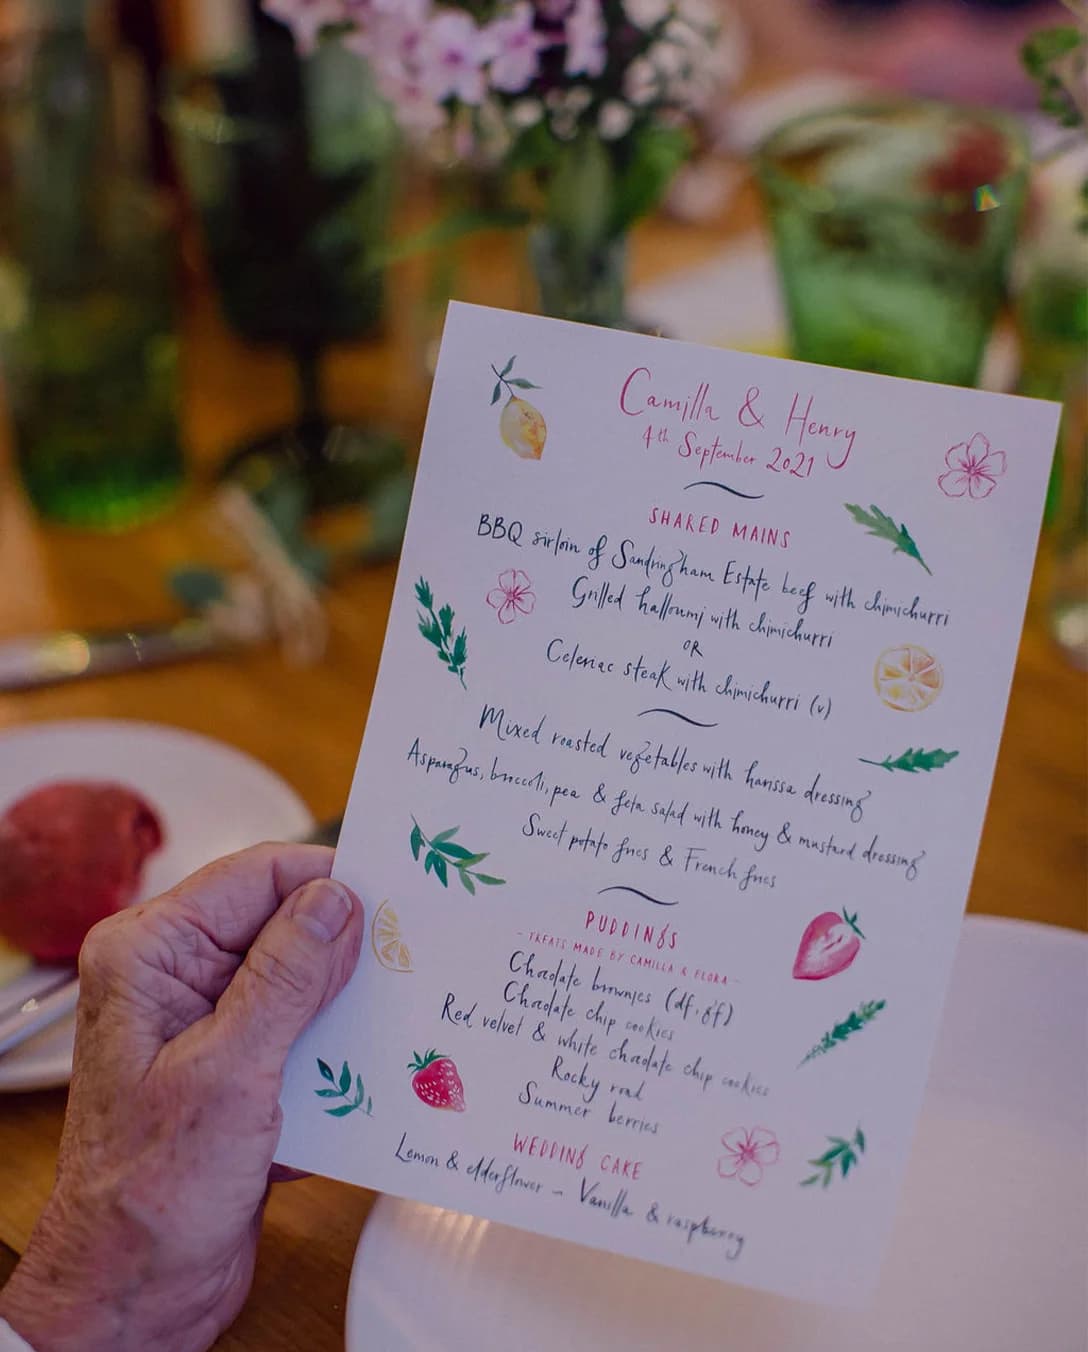 Camilla & Henry
4th September 2021
SHARED MAINS
BBQ sirloin of Sandringham Estate beef with chimichurri
Grilled halloumi with chimichurri
OR
Celeriac steak with chimichurri (v)
Mixed roasted vegetables with harissa dressing
Asparagus, broccoli, pea & feta salad with honey & mustard dressing
Sweet potato fries & French fries
PUDDINGS
- TREATS MADE BY CAMILLA & FLORA -
Chocolate brownies (df, gf)
Chocolate chip cookies
Red velvet & white chocolate chip cookies
Rocky road
Summer berries
WEDDING CAKE
Lemon & elderflower - Vanilla & raspberry